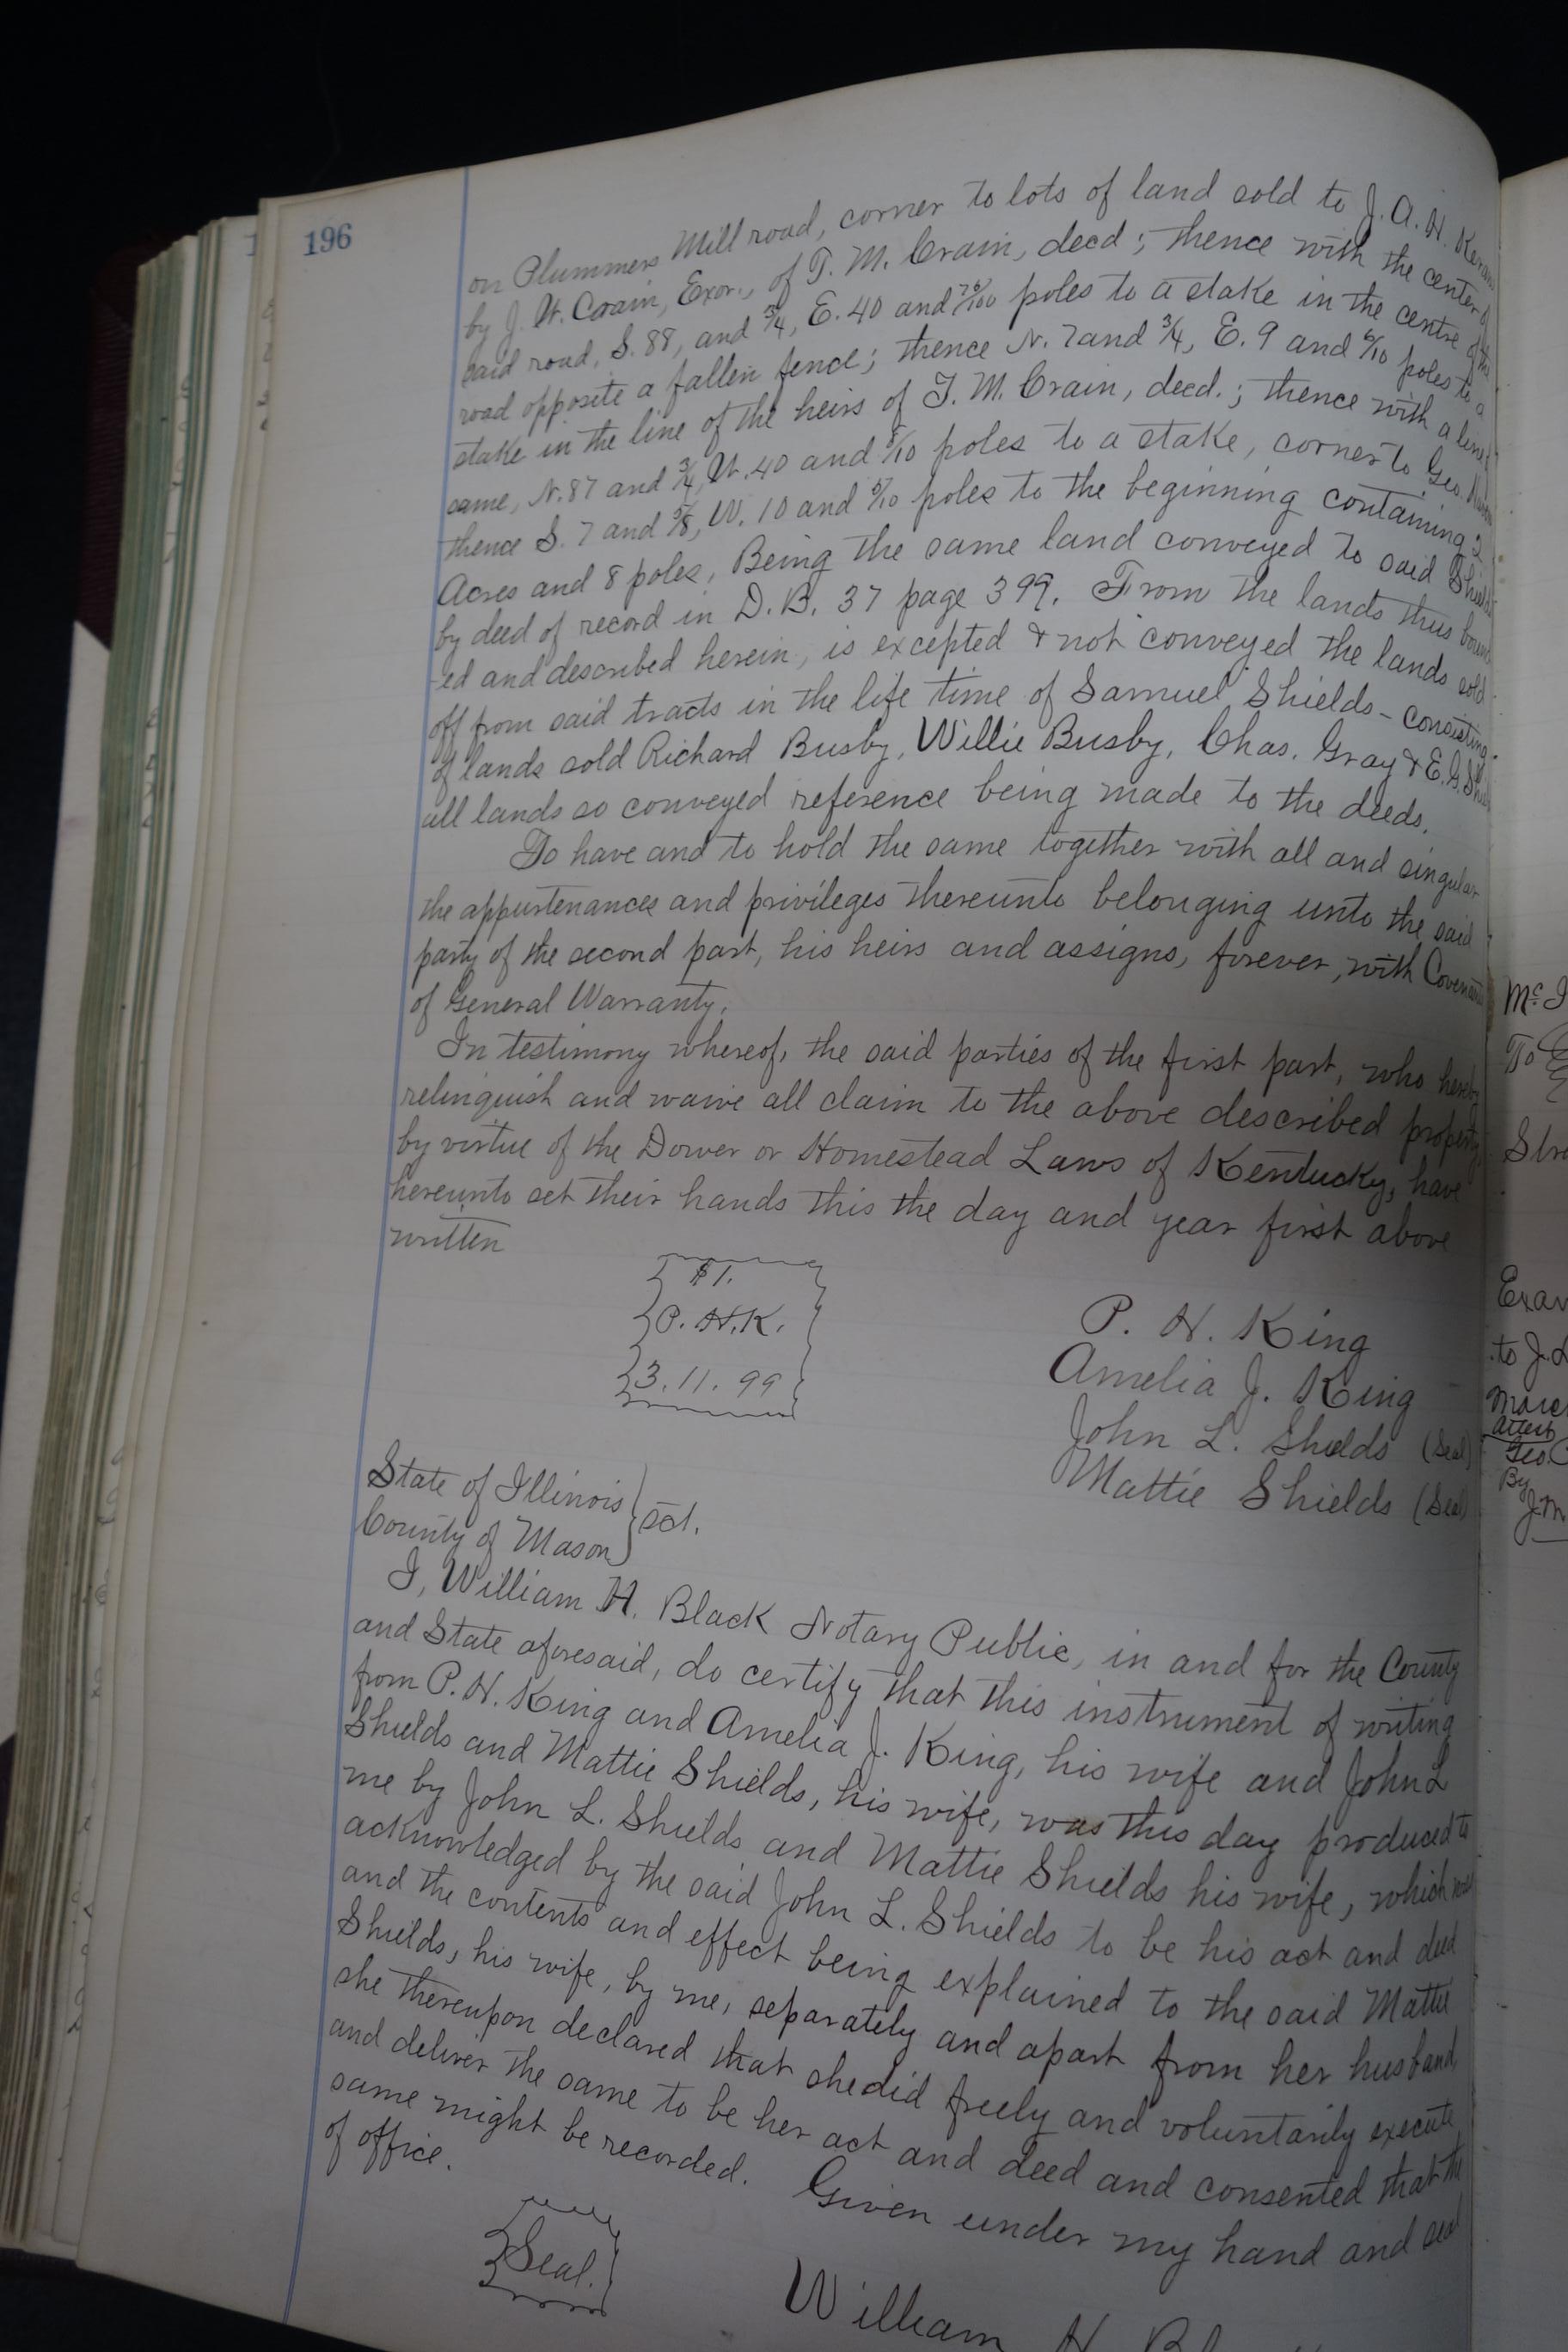 196
on Plummers Mill road, corner to lots of land sold to J. A. H.
by J. W. Crain, Exor., of T. M. Crain, deed; thence with the center of
said road, S. 88, and 3/4, E. 40 and 70/100 poles to a stake in the centre of the
road opposite a fallen fence; thence N. 7 and 3/4, E. 9 and 6/10 poles to a
stake in the line of the heirs of T. M. Crain, deed.; thence with a line of
same, N. 87 and 3/4, W. 40 and 8/10 poles to a stake, corner to Geo.
thence S. 7 and 5/8, W. 10 and 5/10 poles to the beginning containing 2
Acres and 8 poles, Being the same land conveyed to said Shields
by deed of record in D. B. 37 page 399. From the lands thus bound
-ed and described herein, is excepted & not conveyed the lands sold
off from said tracts in the life time of Samuel Shields - consisting
of lands sold Richard Busby, Willie Busby, Chas. Gray & E. G.
all lands so conveyed reference being made to the deeds.
To have and to hold the same together with all and singular
the appurtenances and privileges thereunto belonging unto the said
party of the second part, his heirs and assigns, forever, with Covenant
of General Warranty.
In testimony whereof, the said parties of the first part, who hereby
relinquish and waive all claim to the above described property,
by virtue of the Dower or Homestead Laws of Kentucky, have
hereunto set their hands this the day and year first above
written
$1.
P. H. K.
3. 11. 99
P. H. King
Amelia J. King
John L. Shields (Seal)
Mattie Shields (Seal)
State of Illinois
County of Mason } Sct.
I, William H. Black Notary Public, in and for the County
and State aforesaid, do certify that this instrument of writing
from P. H. King and Amelia J. King, his wife and John L
Shields and Mattie Shields, his wife, was this day produced to
me by John L. Shields and Mattie Shields his wife, which was
acknowledged by the said John L. Shields to be his act and deed
and the contents and effect being explained to the said Mattie
Shields, his wife, by me, separately and apart from her husband,
she thereupon declared that she did freely and voluntarily execute
and deliver the same to be her act and deed and consented that the
same might be recorded. Given under my hand and seal
of office.
Seal.
William H.
Mc
To
to J.
Attest
Geo.
By
J. M.